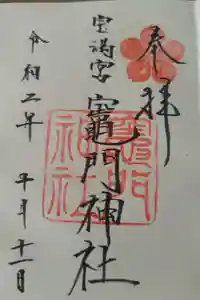 奉拝
宝満宮 竈門神社
竈門
神社
令和二年 十月十一日